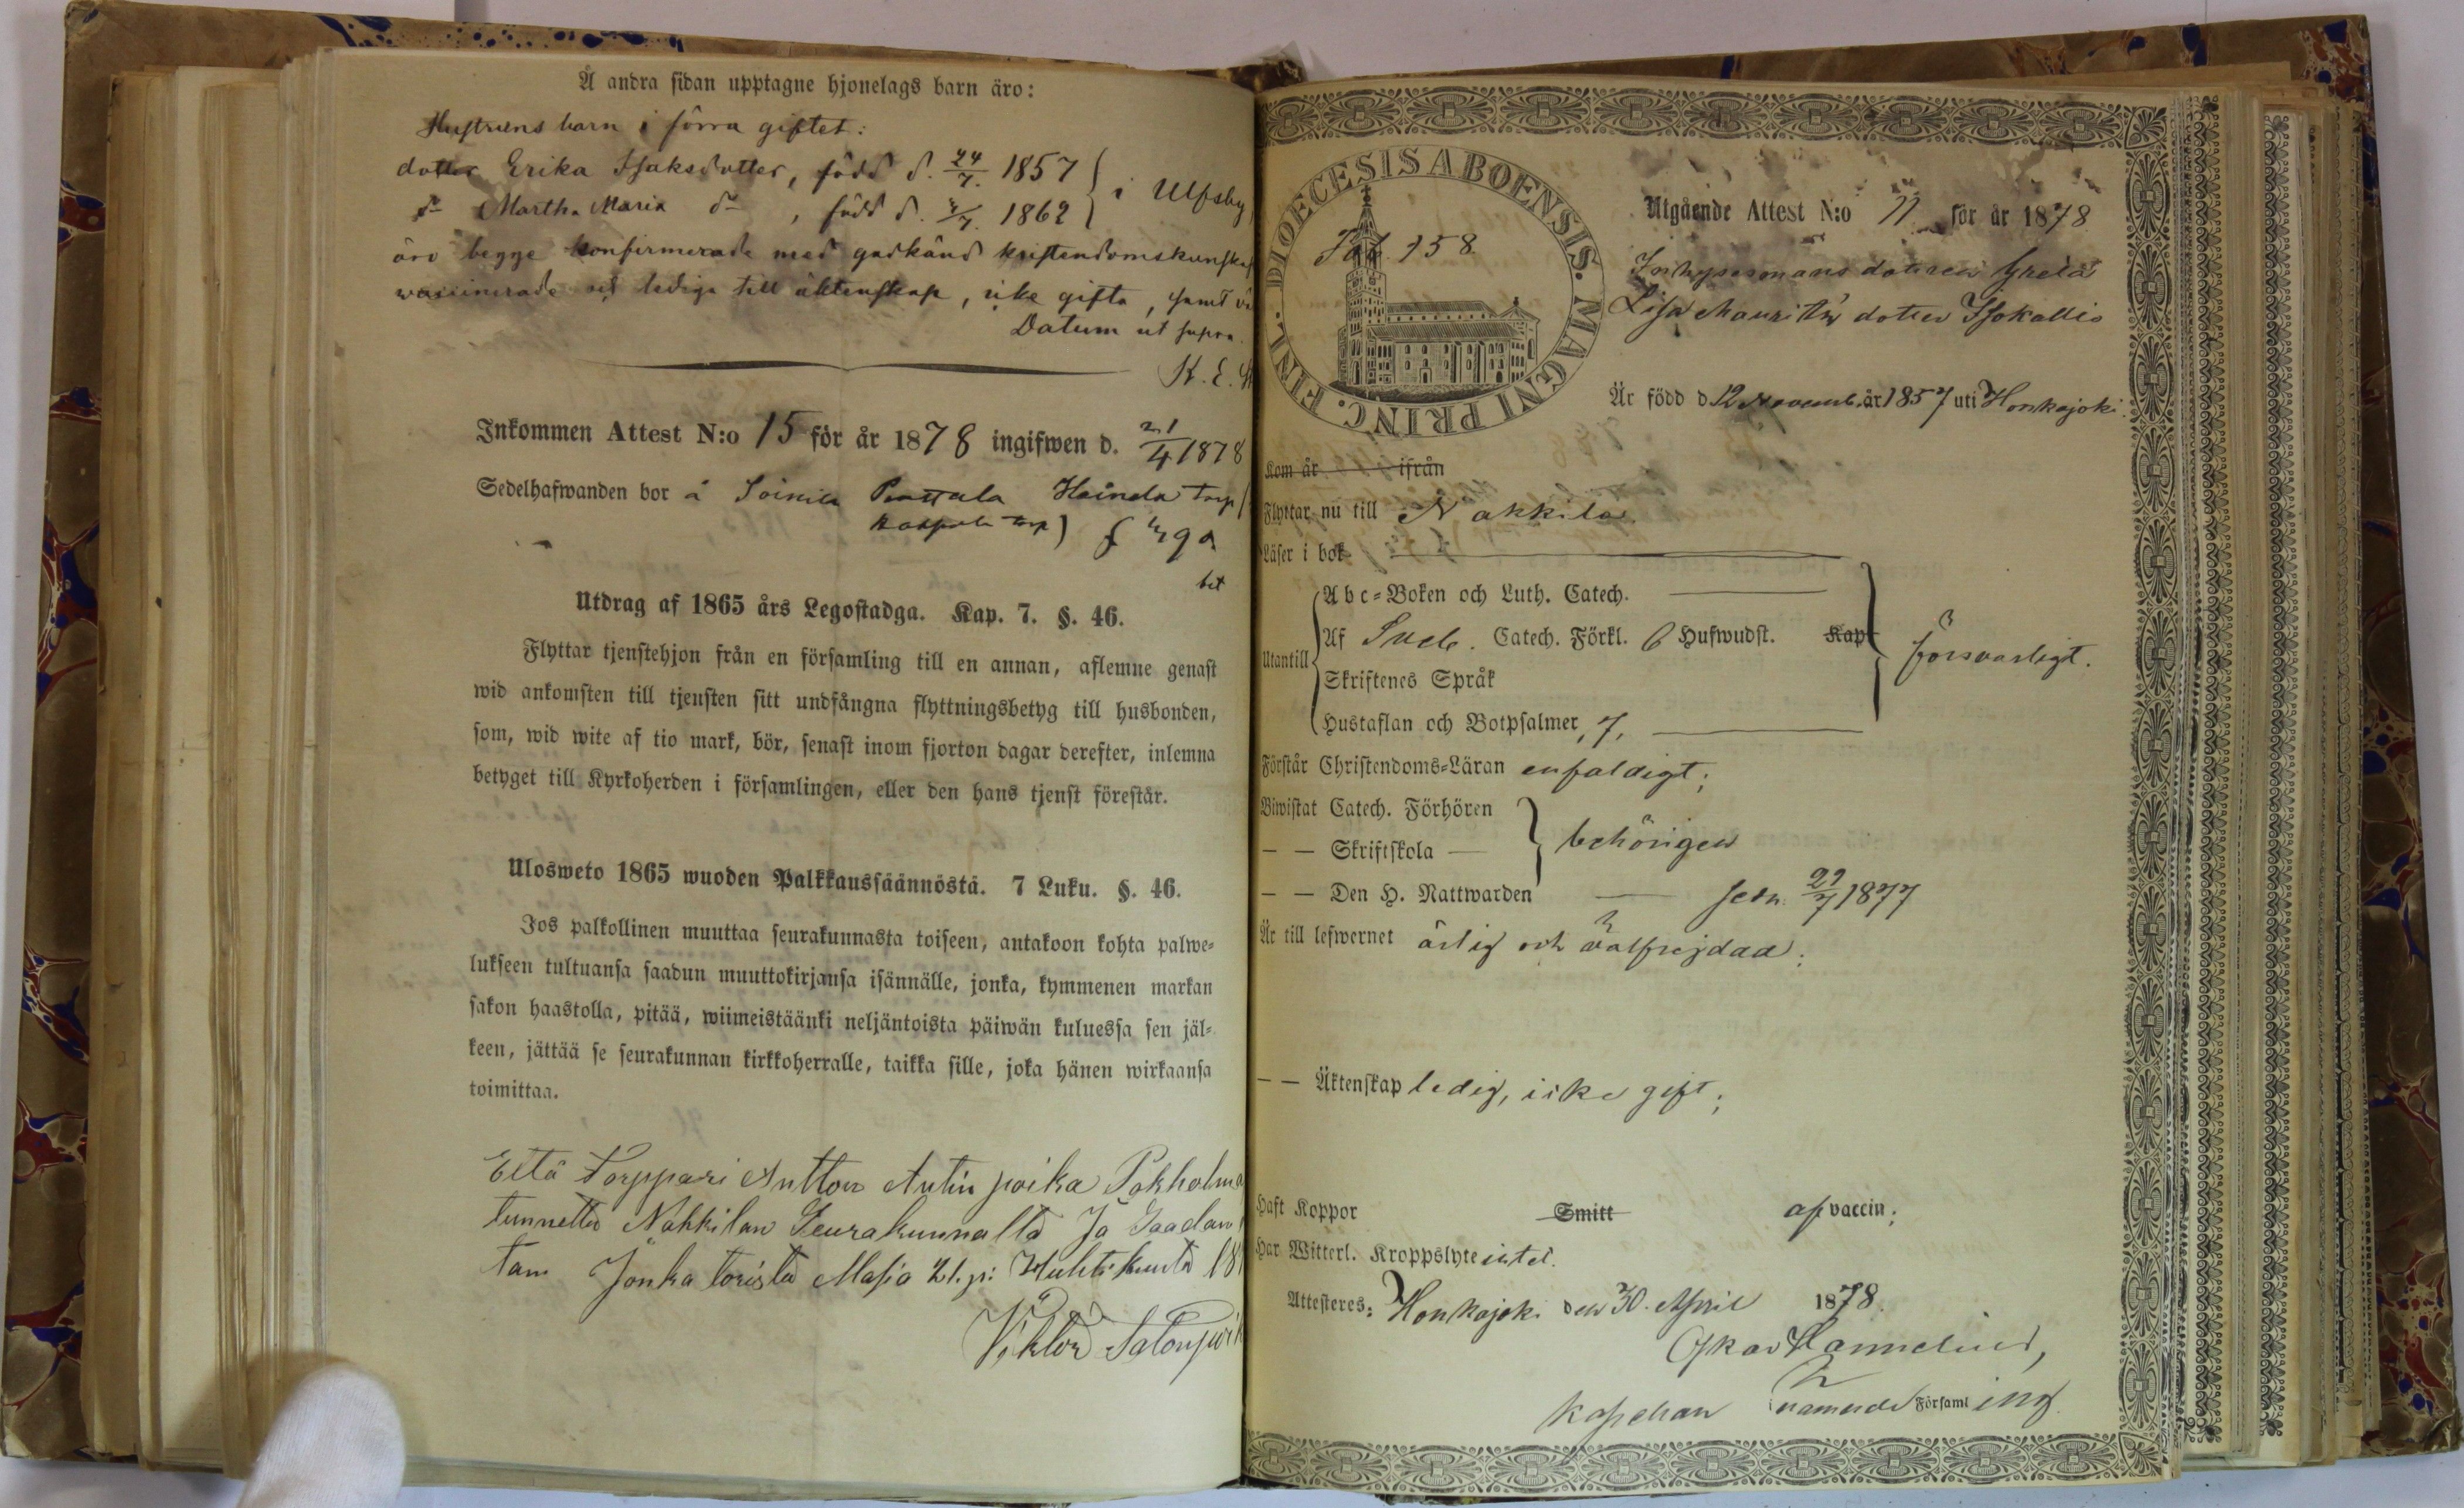 Å andra sidan upptagne hjonelags barn äro:
Hustruns barn i förra giftet:
dotter Erika Isaksdotter, född d. 24/7. 1857
do Martha Maria do, född d. 1862
i Ulfsby,
äro begge konfirmerade med godkänd kristendomskunskap
vaccinerade och lediga till äktenskap, icke gifta, samt
Datum ut supra.
K. E.
Inkommen Attest N:o 15 för år 1878 ingifwen d. 21/4 1878
Sedelhafwanden bor å Soinila Heinola torp
torp)
Utdrag af 1865 års Legostadga. Kap. 7. §. 46.
Flyttar tjenstehjon från en församling till en annan, aflemne genast
wid ankomsten till tjensten sitt undfångna flyttningsbetyg till husbonden,
som, wid wite af tio mark, bör, senast inom fjorton dagar derefter, inlemna
betyget till Kyrkoherden i församlingen, eller den hans tjenst förestår.
Ulosweto 1865 wuoden Palkkaussäännöstä. 7 Luku. §. 46.
Jos palkollinen muuttaa seurakunnasta toiseen, antakoon kohta palwe=
lukseen tultuansa saadun muuttokirjansa isännälle, jonka, kymmenen markan
sakon haastolla, pitää, wiimeistäänki neljäntoista päiwän kuluessa sen jäl=
keen, jättää se seurakunnan kirkkoherralle, taikka sille, joka hänen wirkaansa
toimittaa.
Että Torppari Antton Antin poika Pakholma
tunnettu Nakkilan Seurakunnalta Ja Saadan
tam Jonka torista 21. p: Huhtikuuta 18
Viktor
DIOECESIS ABOENSIS. MAGNI PRINC. FINL.
Fol. 158.
Utgående Attest N:o 11 för år 1878
Inhysesmans dottren Greta
Lisa Mauritz dotter Isokallio
Är född d 12 Novemb. år 1857 uti Honkajoki.
Kom år ifrån
Flyttar nu till Nakkila.
Läser i bok
Abc=Boken och Luth. Catech.
Utantill
Af Sveb. Catech. Förkl. 6 Hufwudst. Kap
Skriftenes Språk
Hustaflan och Botpsalmer, 7,
försvarligt.
Förstår Christendoms=Läran enfaldigt;
Biwistat Catech. Förhören
— — Skriftskola —
behörigen
— — Den H. Nattwarden — sedn. 22/7 1877
Är till lefwernet ärlig och välfrejdad;
— — Äktenskap ledig, icke gift;
Haft Koppor Smitt af vaccin;
Har Witterl. Kroppslyte intet.
Attesteres: Honkajoki den 30. April 1878.
Oskar Hannelius,
kapellan i nämnde Församling